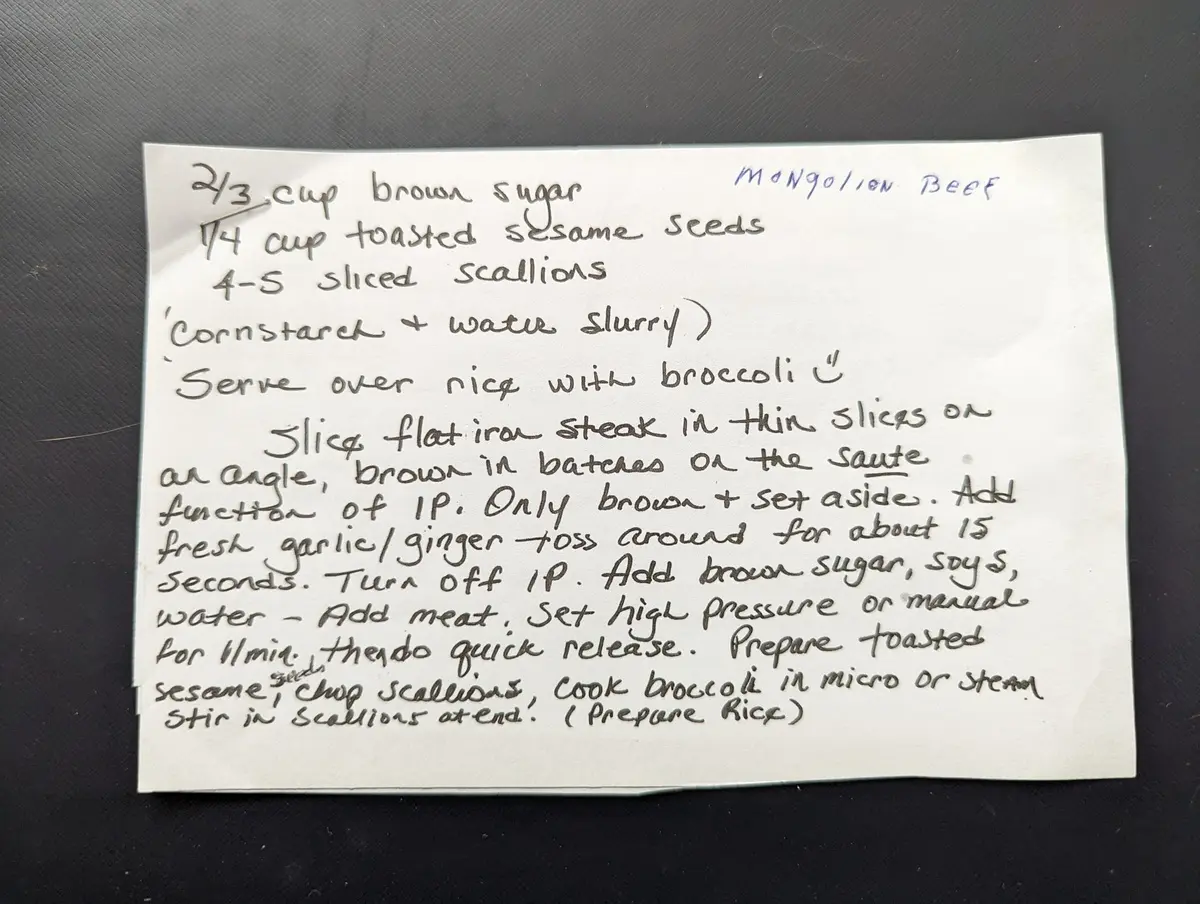 Mongolian Beef
2/3 cup brown sugar
1/4 cup toasted sesame seeds
4-5 sliced scallions
(Cornstarch + water slurry)
Serve over rice with broccoli
Slice flat iron steak in thin slices on
an angle, brown in batches on the saute
function of IP. Only brown + set aside. Add
fresh garlic/ginger toss around for about 15
seconds. Turn off IP. Add brown sugar, soy S,
water - Add meat. Set high pressure or manual
for 11 min. then do quick release. Prepare toasted
sesame seeds, chop scallions, cook broccoli in micro or steam
Stir in scallions at end. (Prepare Rice)